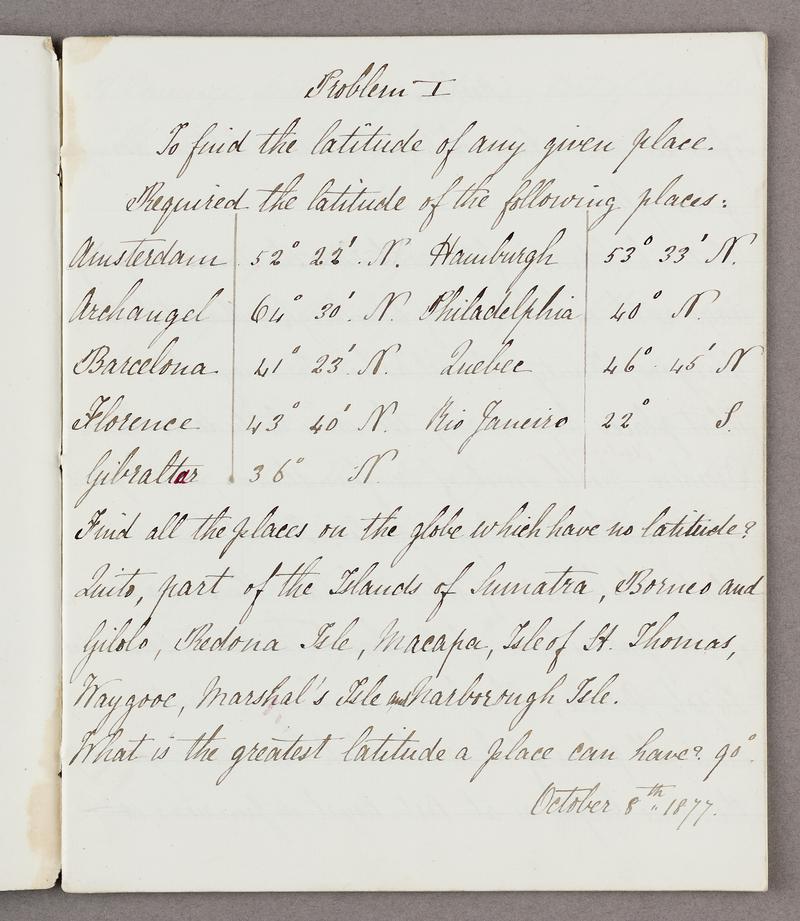 Problem I
To find the latitude of any given place.
Required the latitude of the following places:
Amsterdam 52° 22'. N. Hamburgh 53° 33' N.
Archangel 64° 30'. N. Philadelphia 40° N.
Barcelona 41° 23'. N. Quebec 46° 45' N
Florence 43° 40' N. Rio Janeiro 22° S.
Gibraltar 36° N.
Find all the places on the globe which have no latitude?
Quito, part of the Islands of Sumatra, Borneo and
Gilolo, Redona Isle, Macapa, Isle of St. Thomas,
Waygooe, Marshal's Isle and Narborough Isle.
What is the greatest latitude a place can have? 90°.
October 8th 1877.